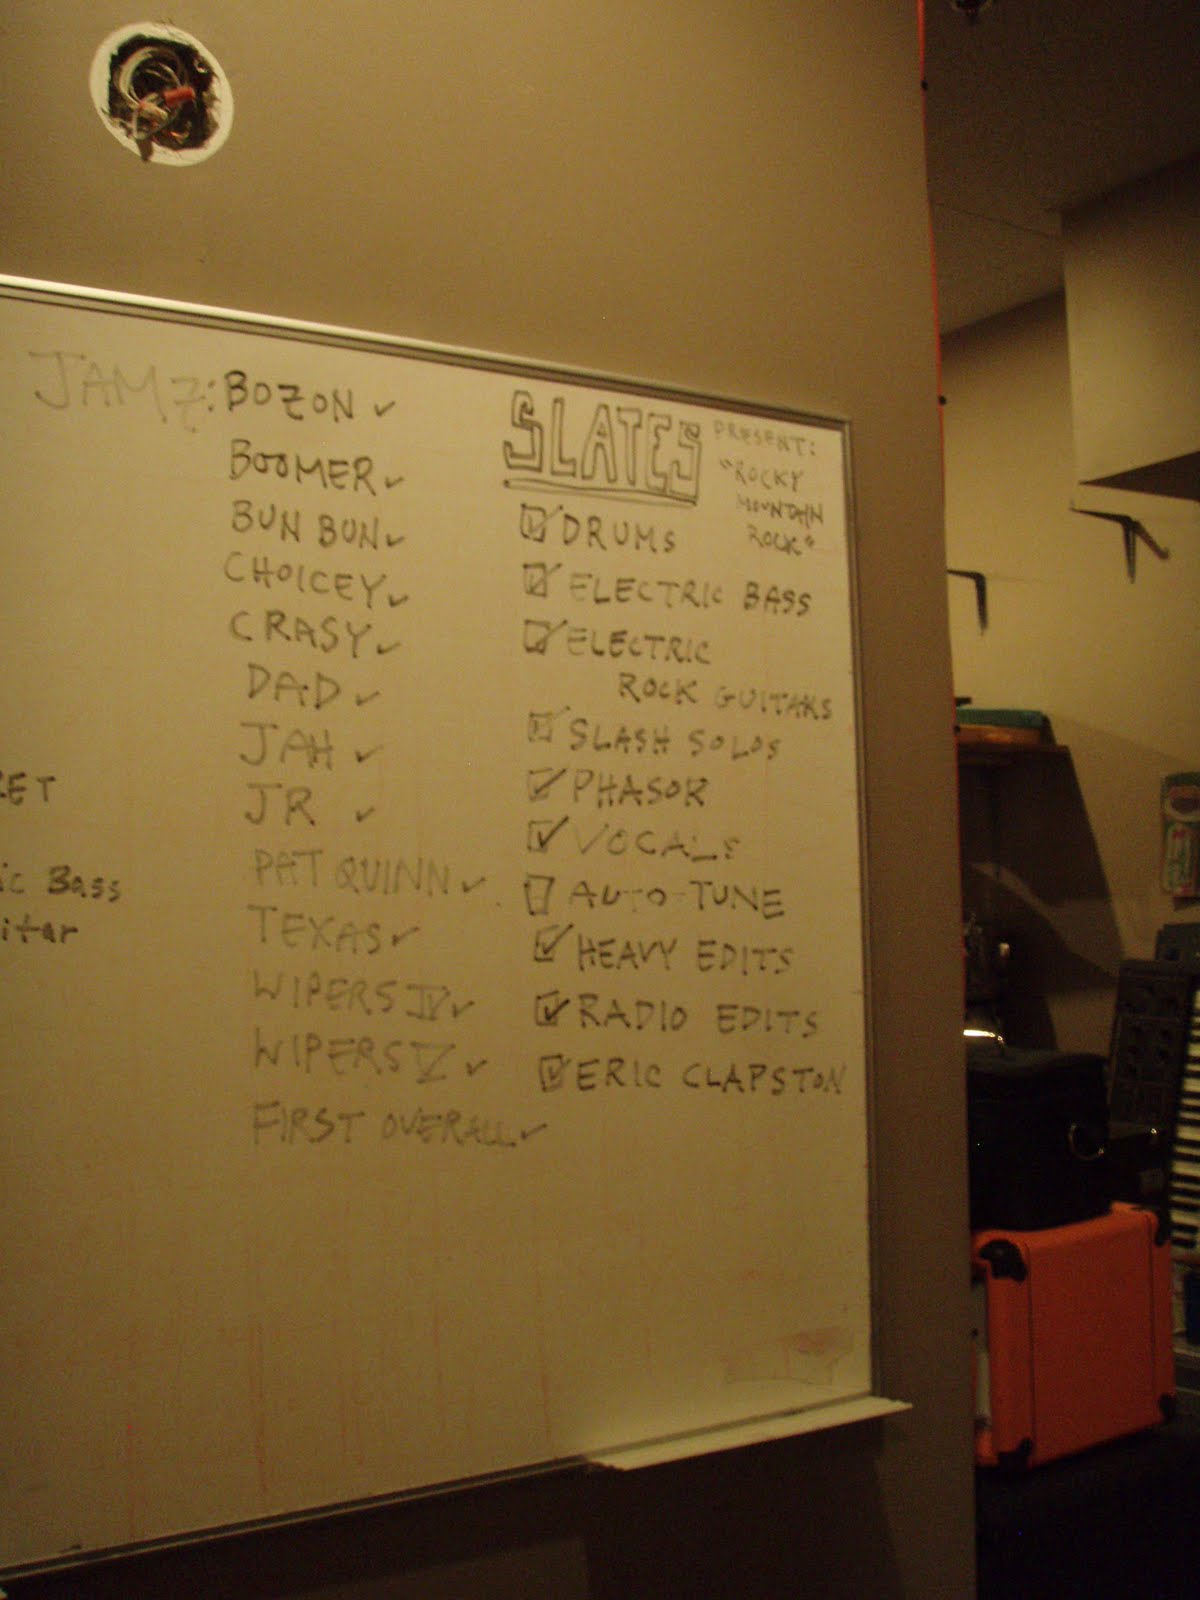 JAMZ: BOZON ✓
BOOMER ✓
BUN BUN ✓
CHOICEY ✓
CRASY ✓
DAD ✓
JAH ✓
JR ✓
PAT QUINN ✓
TEXAS ✓
WIPERS IV ✓
WIPERS V ✓
FIRST OVERALL ✓
SLATES
PRESENT:
"ROCKY
MOUNTAIN
ROCK"
DRUMS
ELECTRIC BASS
ELECTRIC
ROCK GUITARS
SLASH SOLOS
PHASOR
VOCALS
AUTO-TUNE
HEAVY EDITS
RADIO EDITS
ERIC CLAPSTON
Bass